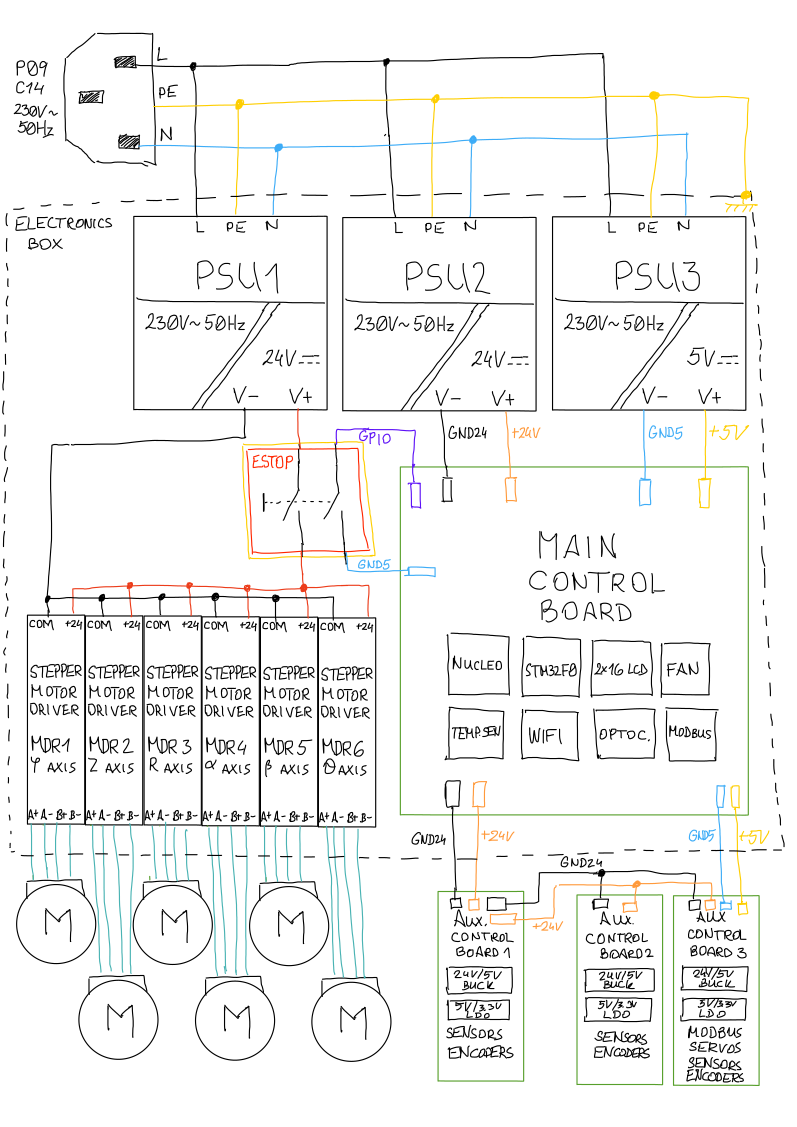 P09
C14
230V~
50Hz
L
PE
N
ELECTRONICS
BOX
L PE N
PSU1
230V~50Hz
24V
V- V+
L PE N
PSU2
230V~50Hz
24V
V- V+
L PE N
PSU3
230V~50Hz
5V
V- V+
GPIO
GND24
+24V
GND5
+5V
ESTOP
GND5
MAIN
CONTROL
BOARD
NUCLEO
STM32F0
2x16 LCD
FAN
TEMP.SEN
WIFI
OPTOC.
MODBUS
COM +24
STEPPER
MOTOR
DRIVER
MDR1
φ AXIS
A+ A- B+ B-
COM +24
STEPPER
MOTOR
DRIVER
MDR2
Z AXIS
A+ A- B+ B-
COM +24
STEPPER
MOTOR
DRIVER
MDR3
R AXIS
A+ A- B+ B-
COM +24
STEPPER
MOTOR
DRIVER
MDR4
α AXIS
A+ A- B+ B-
COM +24
STEPPER
MOTOR
DRIVER
MDR5
β AXIS
A+ A- B+ B-
COM +24
STEPPER
MOTOR
DRIVER
MDR6
θ AXIS
A+ A- B+ B-
GND24
+24V
GND5
+5V
GND24
+24V
M
M
M
M
M
M
AUX.
CONTROL
BOARD 1
24V/5V
BUCK
5V/3.3V
LDO
SENSORS
ENCODERS
AUX.
CONTROL
BOARD 2
24V/5V
BUCK
5V/3.3V
LDO
SENSORS
ENCODERS
AUX
CONTROL
BOARD 3
24V/5V
BUCK
5V/3.3V
LDO
MODBUS
SERVOS
SENSORS
ENCODERS